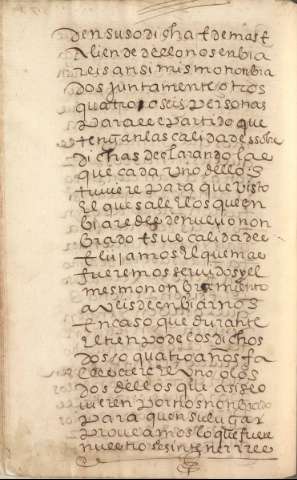 den suso dicha E demas E
Aliende dello nos enbia
reis ansi mismo nonbra
dos Juntamente otros
quatro o seis personas
para ese partido que
tengan las calidades sobre
dichas declarando la
que cada uno dellos
tuviere para que visto
El que sale los que en
biaredes de nuevo non
brado E su calidad
Elijamos el que mas
fueremos servidos y el
mesmo nonbramiento
aveis de enbiarnos
En caso que durante
el tienpo de los dichos
dos o quatro años fa
lleciere uno o los
dos dellos que asi se o
vieren por nos nonbrado
para que en su lugar
proveamos lo que fuere
nuestro